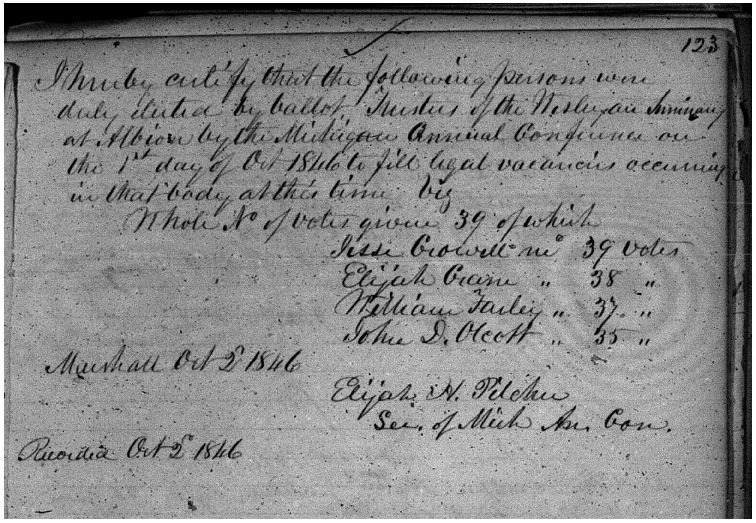 123
I hereby certify that the following persons were
duly elected by ballot Trustees of the Wesleyan Seminary
at Albion by the Michigan Annual Conference on
the 1st day of Oct 1846 to fill legal vacancies occurring
in that body at this time viz
Whole No of votes given 39 of which
Jesse Crowell 39 votes
Elijah Crane " 38 "
William Farley " 37 "
John D. Olcott " 35 "
Marshall Oct 2d 1846
Elijah H. Pilcher
Sec. of Mich An. Con.
Recorded Oct 2d 1846